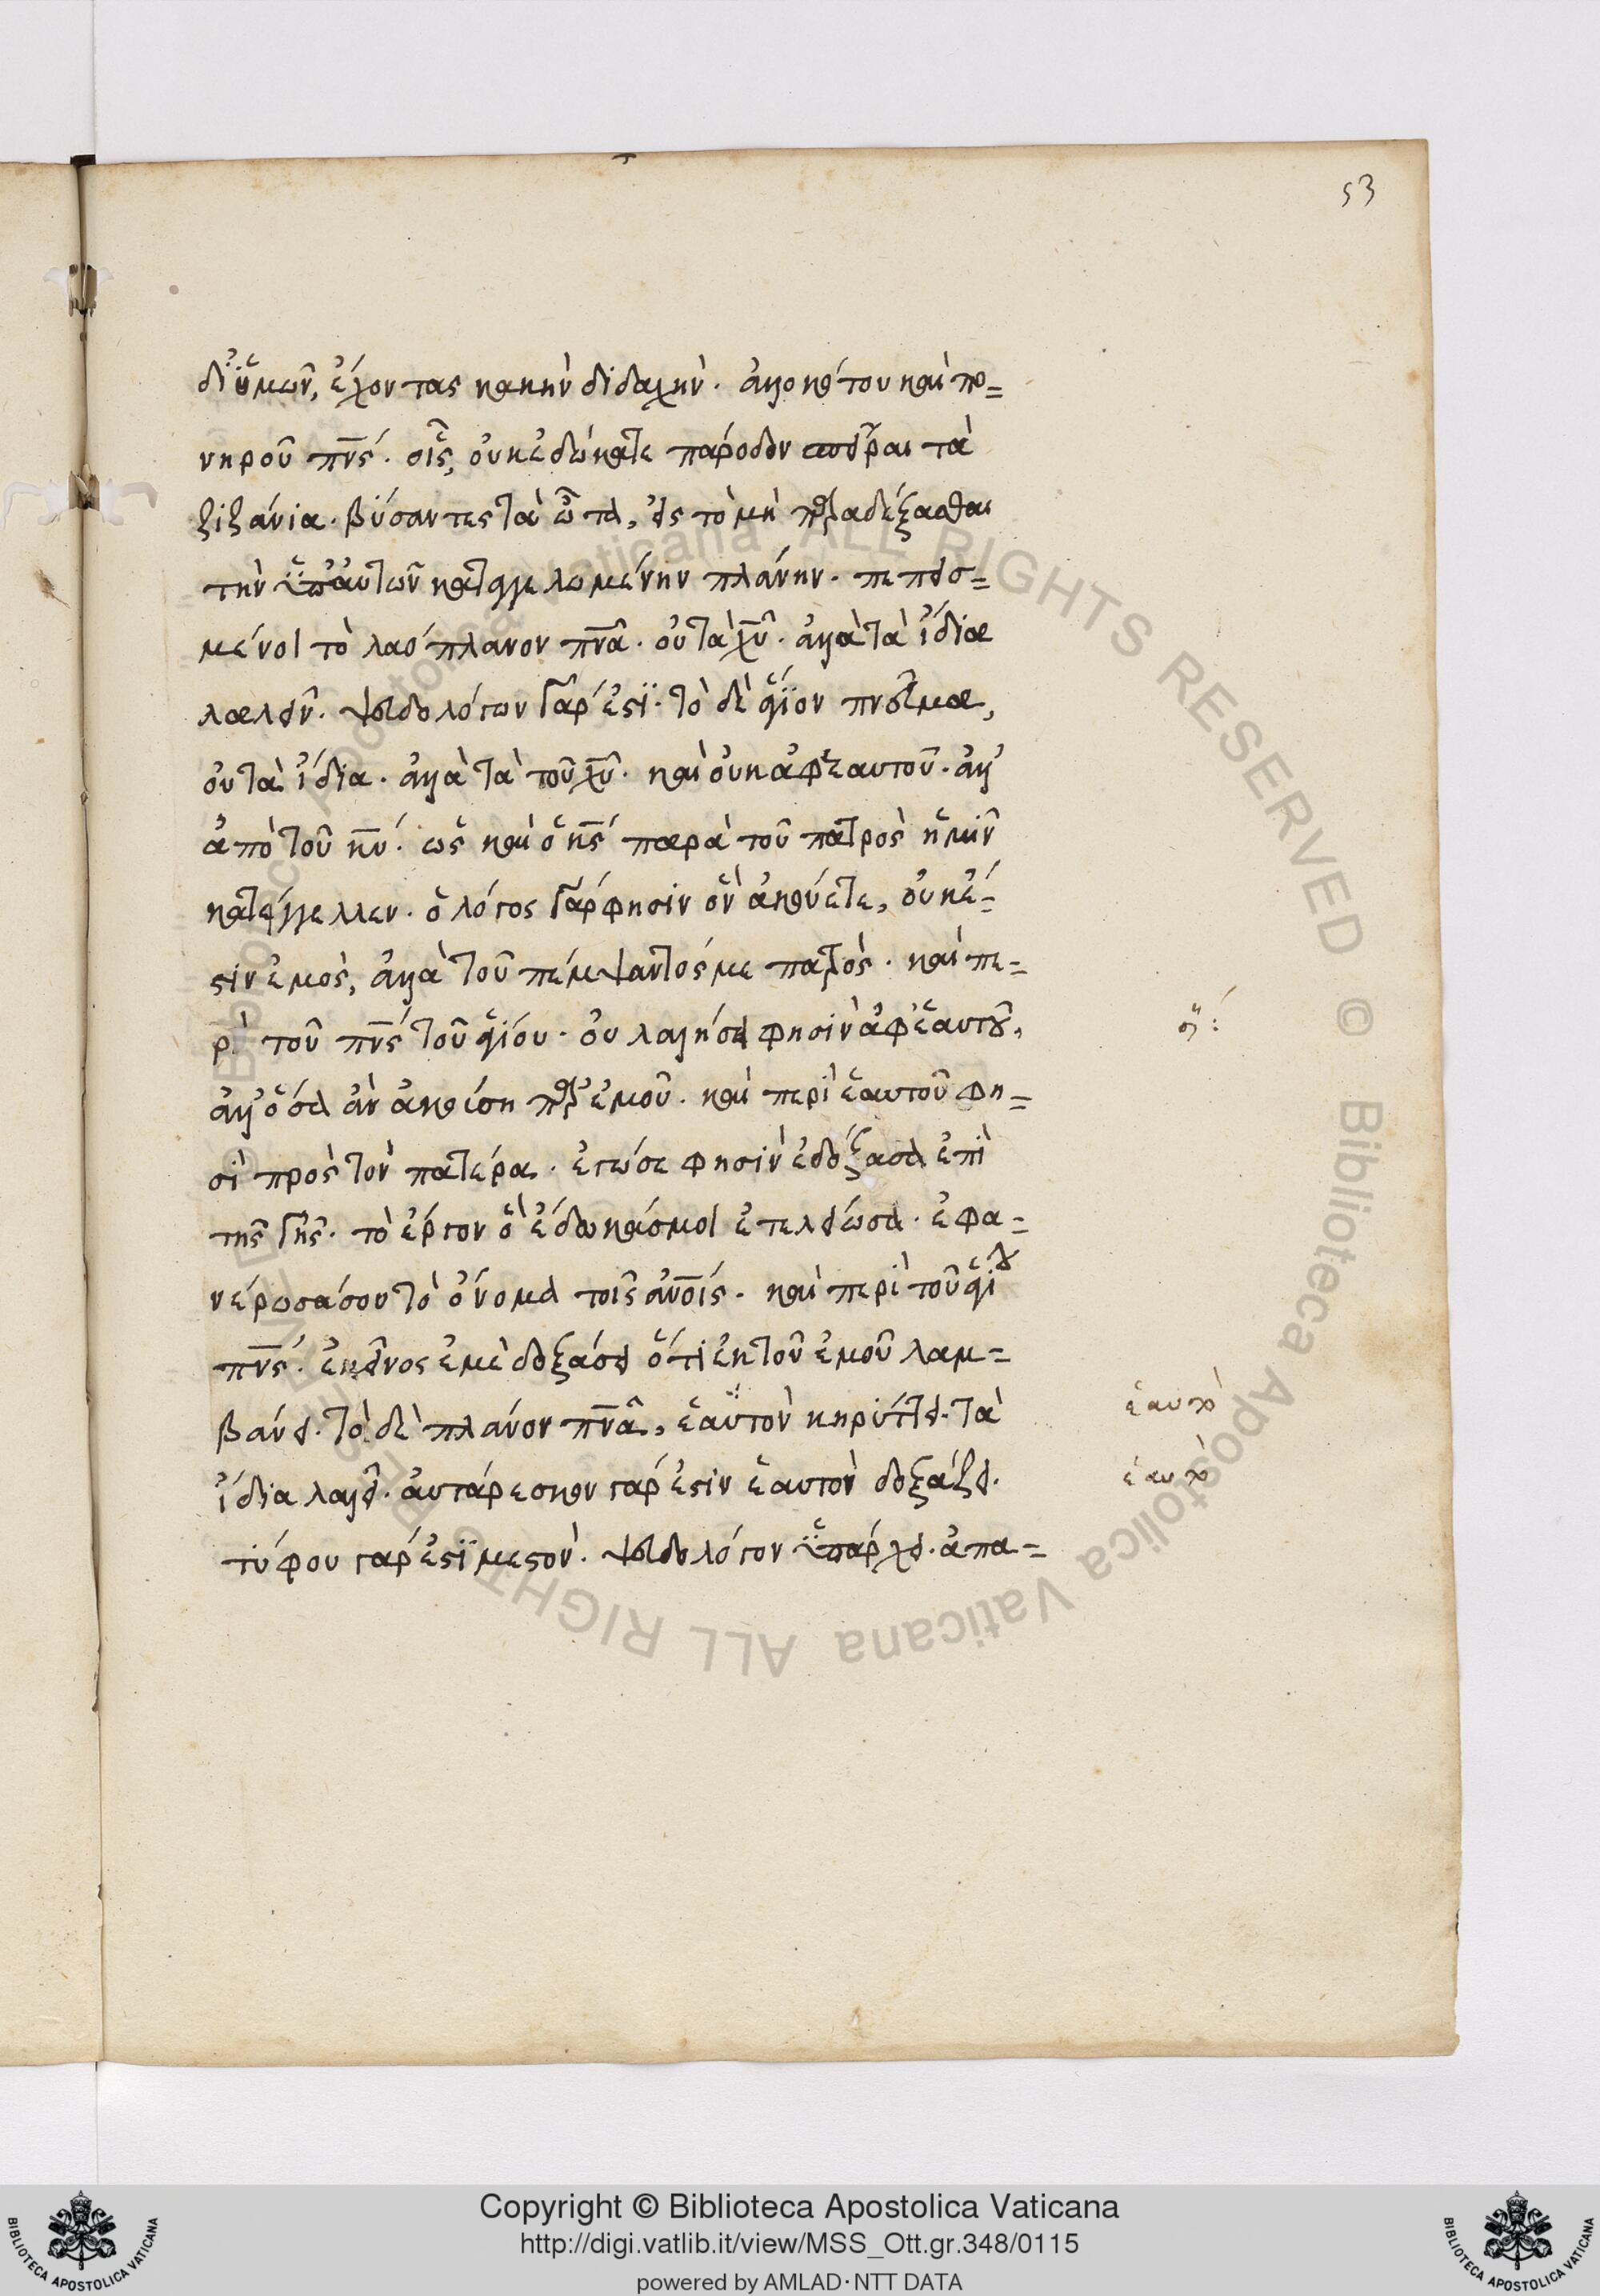 53
δι' ὑμῶν, ἔχοντας κακὴν διδαχὴν. ἀλλοκότου καὶ πο=
νηροῦ πν̅ς́. οἷς, οὐκ ἐδώκατε πάροδον σπεῖραι τὰ
ζιζάνια. βύσαντες τὰ ὦτα, εἰς τὸ μὴ παραδέξασθαι
τὴν ὑπ' αὐτῶν καταγγελωμένην πλάνην. πεπεισ=
μένοι τὸ λαόπλανον πν̅α. οὐ τὰ χ̅υ. ἀλλὰ τὰ ἴδια
λαλεῖν. ψευδολόγων γάρ ἐστϊ. τὸ δὲ ἅγϊον πνεῦμα,
οὐ τὰ ἴδια. ἀλλὰ τὰ τοῦ χ̅υ. καὶ οὐκ ἀφ' ἑαυτοῦ. ἀλλ'
ἀπὸ τοῦ κ̅υ. ὡς καὶ ὁ κ̅ς παρὰ τοῦ πατρὸς ἡμῖν
κατήγγελλεν. ὁ λόγος γάρ φησιν ὃν ἀκούετε, οὐκ έ=
στιν ἐμὸς, ἀλλὰ τοῦ πέμψαντός με πατρὸς. καὶ πε=
ρὶ τοῦ πν̅ς τοῦ ἁγίου. οὐ λαλήσει φησὶν ἀφ' ἑαυτοῦ,
ἀλλ' ὅσα ἂν ἀκούση παρ' ἐμοῦ. καὶ περὶ ἑαυτοῦ φη=
σὶ πρὸς τὸν πατέρα. ἐγώ σε φησὶν ἐδόξασα ἐπὶ
τῆς γῆς. τὸ ἔργον ὃ ἔδωκάς μοι ἐτελείωσα. ἐφα=
νέρωσά σου τὸ ὄνομα τοῖς ἀν̅οις. καὶ περὶ τοῦ ἁγίου
πν̅ς. ἐκεῖνος ἐμὲ δοξάσει ὅτι ἐκ τοῦ ἐμοῦ λαμ=
βάνει. τὸ δὲ πλάνον πν̅α, ἑαϋτὸν κηρύττει. τὰ
ἑαυτὸ
ἴδια λαλεῖ. ἀυτάρεσκον γάρ ἐστιν ἑαυτὸν δοξάζει.
ἑαυτὸ
τύφου γάρ ἐστϊ μεστὸν. ψευδολόγον ὑπάρχει. ἀπα=
Copyright © Biblioteca Apostolica Vaticana
http://digi.vatlib.it/view/MSS_Ott.gr.348/0115
powered by AMLAD·NTT DATA